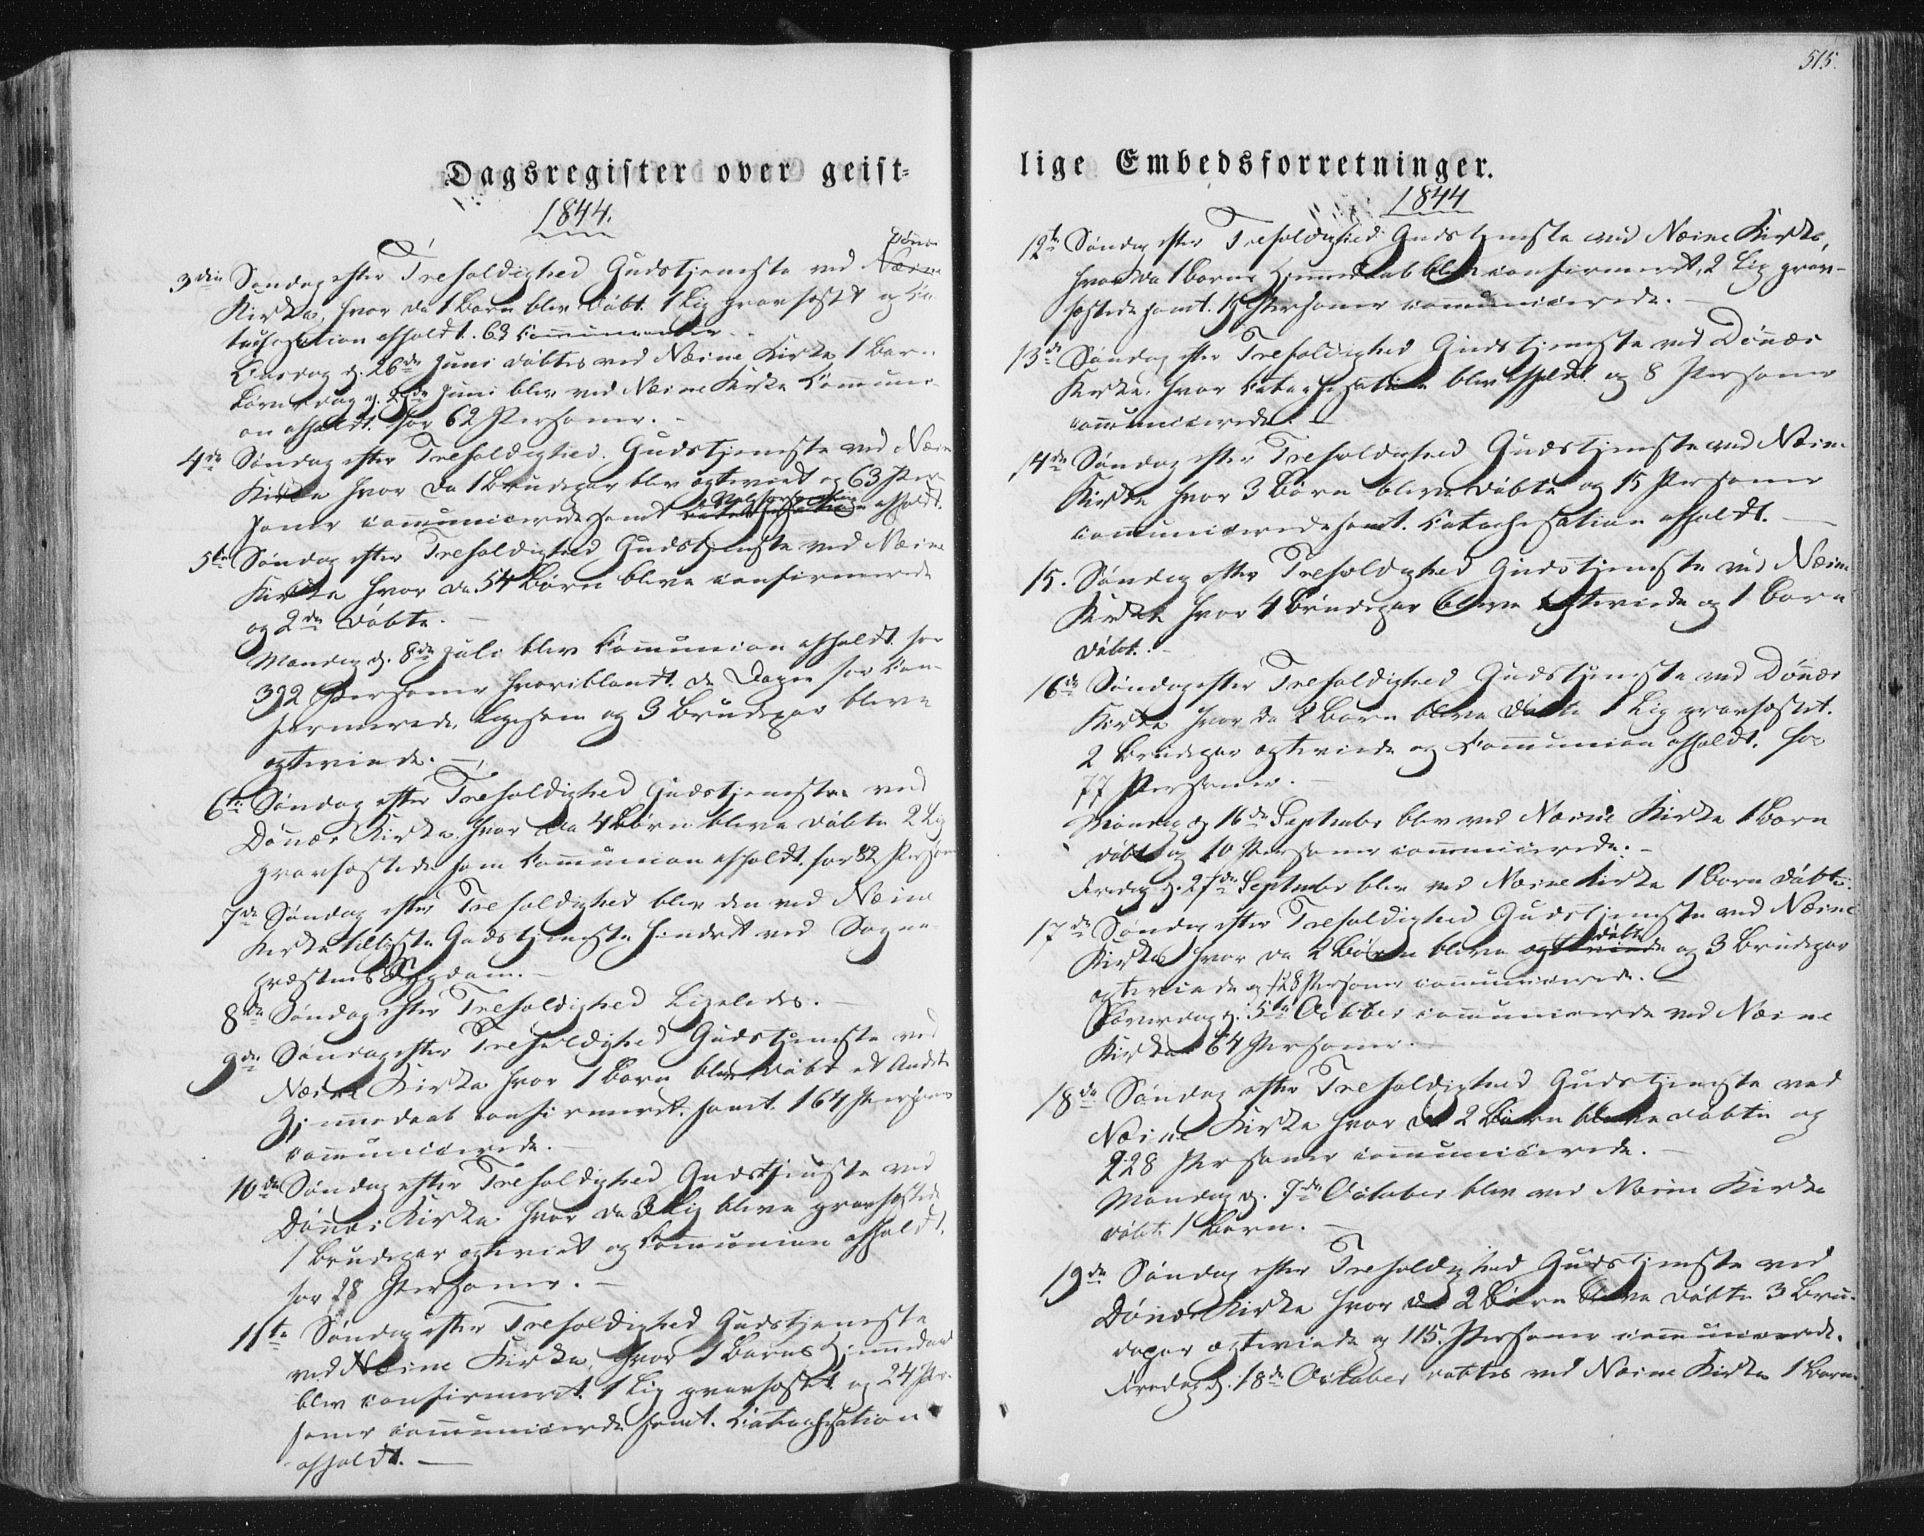 Dagsregister over geist=
1844.
Dønæs
3die Søndag efter Trefoldighed Gudstjeneste ved Næsne
Kirke, hvor da 1 Barn blev døbt. 1 Lig gravfæstet og Ca-
techesation afholdt. 63 Communicanter.
Onsdag d. 26de Juni døbtes ved Næsne Kirke 1 Barn.
Løverdag d. Juni blev ved Næsne Kirke Communi-
on afholdt for 62 Personer. -
4de Søndag efter Trefoldighed. Gudstjeneste ved Næsne
Kirke hvor da 1 Brudepar blev ægteviet og 63 Per-
soner communicerede samt afholdt.
5te Søndag efter Trefoldighed Gudstjeneste ved Næsne
Kirke hvor da 54 Børn bleve confirmerede
og 2de døbte. -
Mandag d. 8de Juli blev Communion afholdt for
392 Personer hvoriblandt de Dagen før Con-
firmerede, ligesom og 3 Brudepar bleve
ægteviede. -
6te Søndag efter Trefoldighed Gudstjeneste ved
Dønæs Kirke hvor da 4 Børn bleve døbte 2 Lig
gravfæstede samt Communion afholdt for 82 Personer
7de Søndag efter Trefoldighed blev den ved Næsne
Kirke tillyste Gudstjeneste hindret ved Sogne-
præstens Sygdom. -
8de Søndag efter Trefoldighed Ligeledes. -
9de Søndag efter Trefoldighed Gudstjeneste ved
Næsne Kirke hvor 1 Barn blev døbt et Andets
Hjemmedaab confirmeret samt 164 Personer
communicerede. -
10de Søndag efter Trefoldighed Gudstjeneste ved
Dønæs Kirke hvor da 3 Lig bleve gravfæstede
1 Brudepar ægteviet og Communion afholdt.
for 28 Personer. -
11te Søndag efter Trefoldighed Gudstjeneste
ved Næsne Kirke, hvor 1 Barns Hjemmedaab
blev confirmeret 1 Lig gravfæstet og 24 Per-
soner communicerede samt Catechesation
afholdt. -
515.
lige Embedsforretninger.
1844
12te Søndag efter Trefoldighed Gudstjeneste ved Næsne Kirke,
hvor da 1 Barns Hjemmedaab blev confirmeret, 2 Lig grav-
fæstede samt Personer communicerede. -
13de Søndag efter Trefoldighed Gudstjeneste ved Dønæs
Kirke, hvor Catechesation blev holdt og 8 Personer
communicerede. -
14de Søndag efter Trefoldighed Gudstjeneste ved Næsne
Kirke hvor 3 Børn bleve døbte og 15 Personer
communicerede samt Catechesation afholdt. -
15. Søndag efter Trefoldighed Gudstjeneste ved Næsne
Kirke hvor 4 Brudepar bleve ægteviede og 1 Barn
døbt. -
16de Søndag efter Trefoldighed Gudstjeneste ved Dønæs
Kirke hvor da 2 Børn bleve døbte 1 Lig gravfæstet.
2 Brudepar ægteviede og Communion afholdt for
77 Personer. -
Mandag d. 16de September blev ved Næsne Kirke 1 Barn
døbt og 10 Personer communicerede. -
Fredag d. 27de September blev ved Næsne Kirke 1 Barn døbt.
17de Søndag efter Trefoldighed Gudstjeneste ved Næsne
Kirke hvor da 2 Børn bleve ægteviede døbte og 3 Brudepar
ægteviede og 128 Personer communicerede. -
Løverdag d. 5te October communicerede ved Næsne
Kirke 64 Personer. -
18de Søndag efter Trefoldighed Gudstjeneste ved
Næsne Kirke hvor da 2 Børn bleve døbte og
228 Personer communicerede. -
Mandag d. 7de October blev ved Næsne Kirke
døbt 1 Barn. -
19de Søndag efter Trefoldighed Gudstjeneste ved
Dønæs Kirke hvor da 2 Børn bleve døbte 3 Bru-
depar ægteviede og 115. Personer communicerede.
Fredag d. 18de October døbtes ved Næsne Kirke 1 Barn.